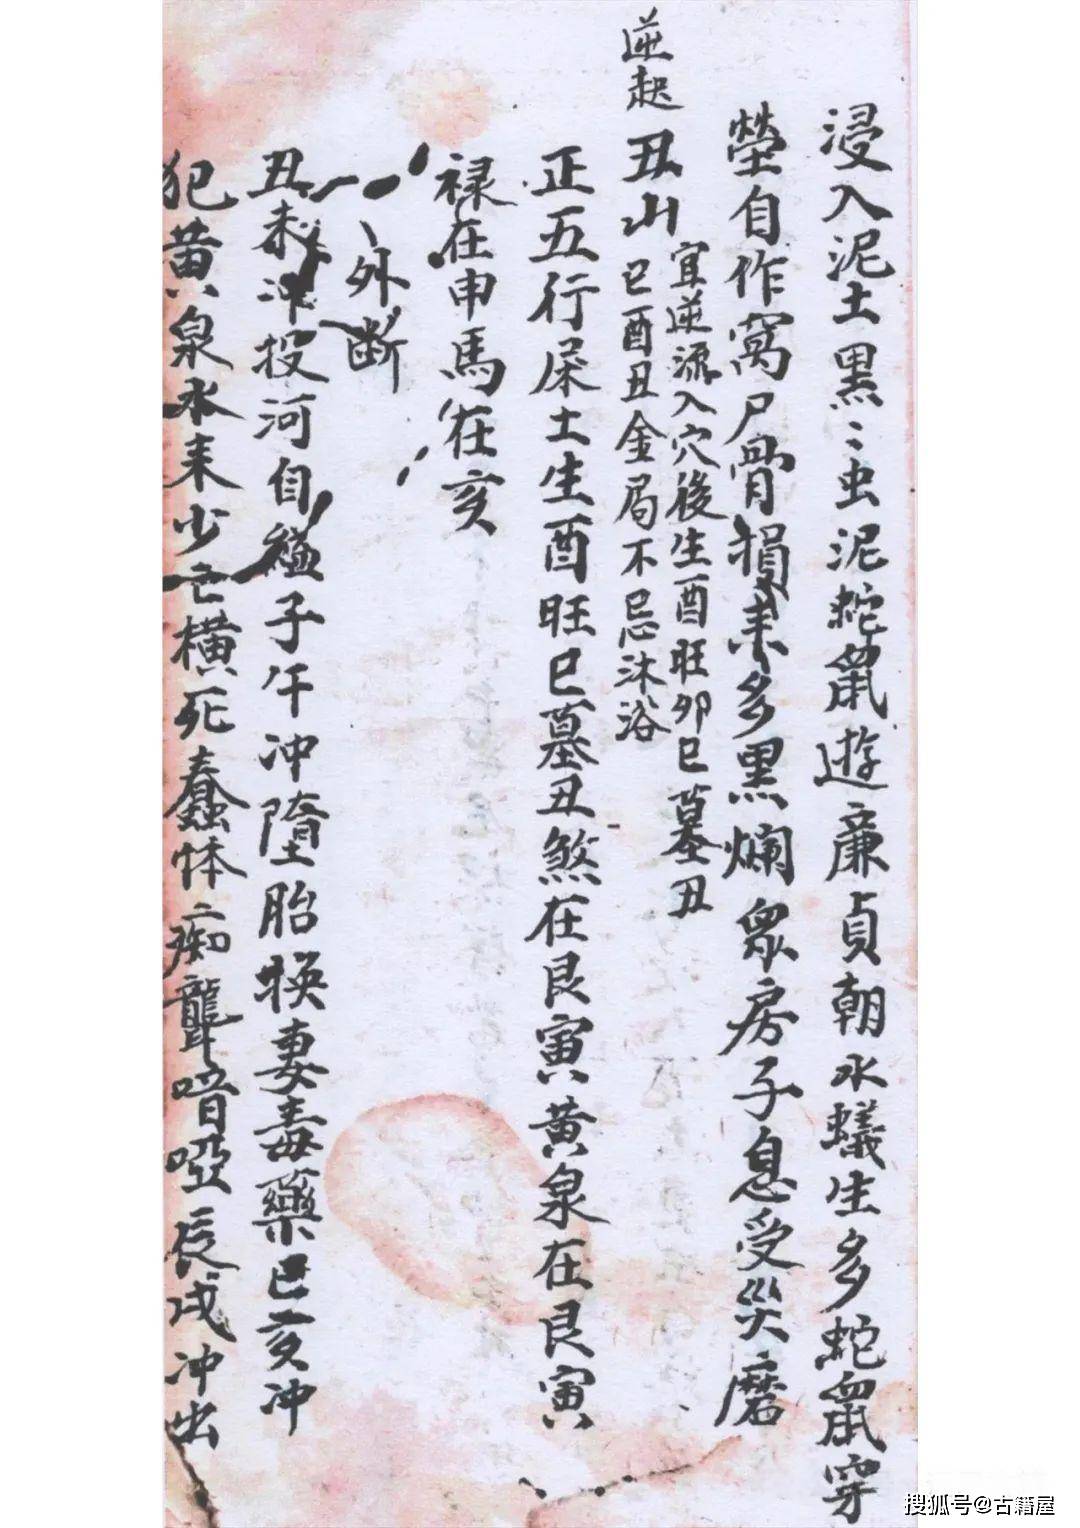 浸入泥土黒〻虫泥蛇鼠遊廉貞朝水蟻生多蛇鼠穿
塋自作窩尸骨損耒多黒爛眾房子息受災磨
逆起
丑山
宜逆流入穴後生酉旺夘巳墓丑
巳酉丑金局不忌沐浴
正五行屎土生酉旺巳墓丑煞在艮寅黄泉在艮寅
禄在申馬在亥
外断
丑未冲投河自縊子午冲墮胎换妻毒藥巳亥冲
犯黄泉水耒少亡横死蠢体痴聾喑啞辰戌冲出
搜狐号@古籍屋